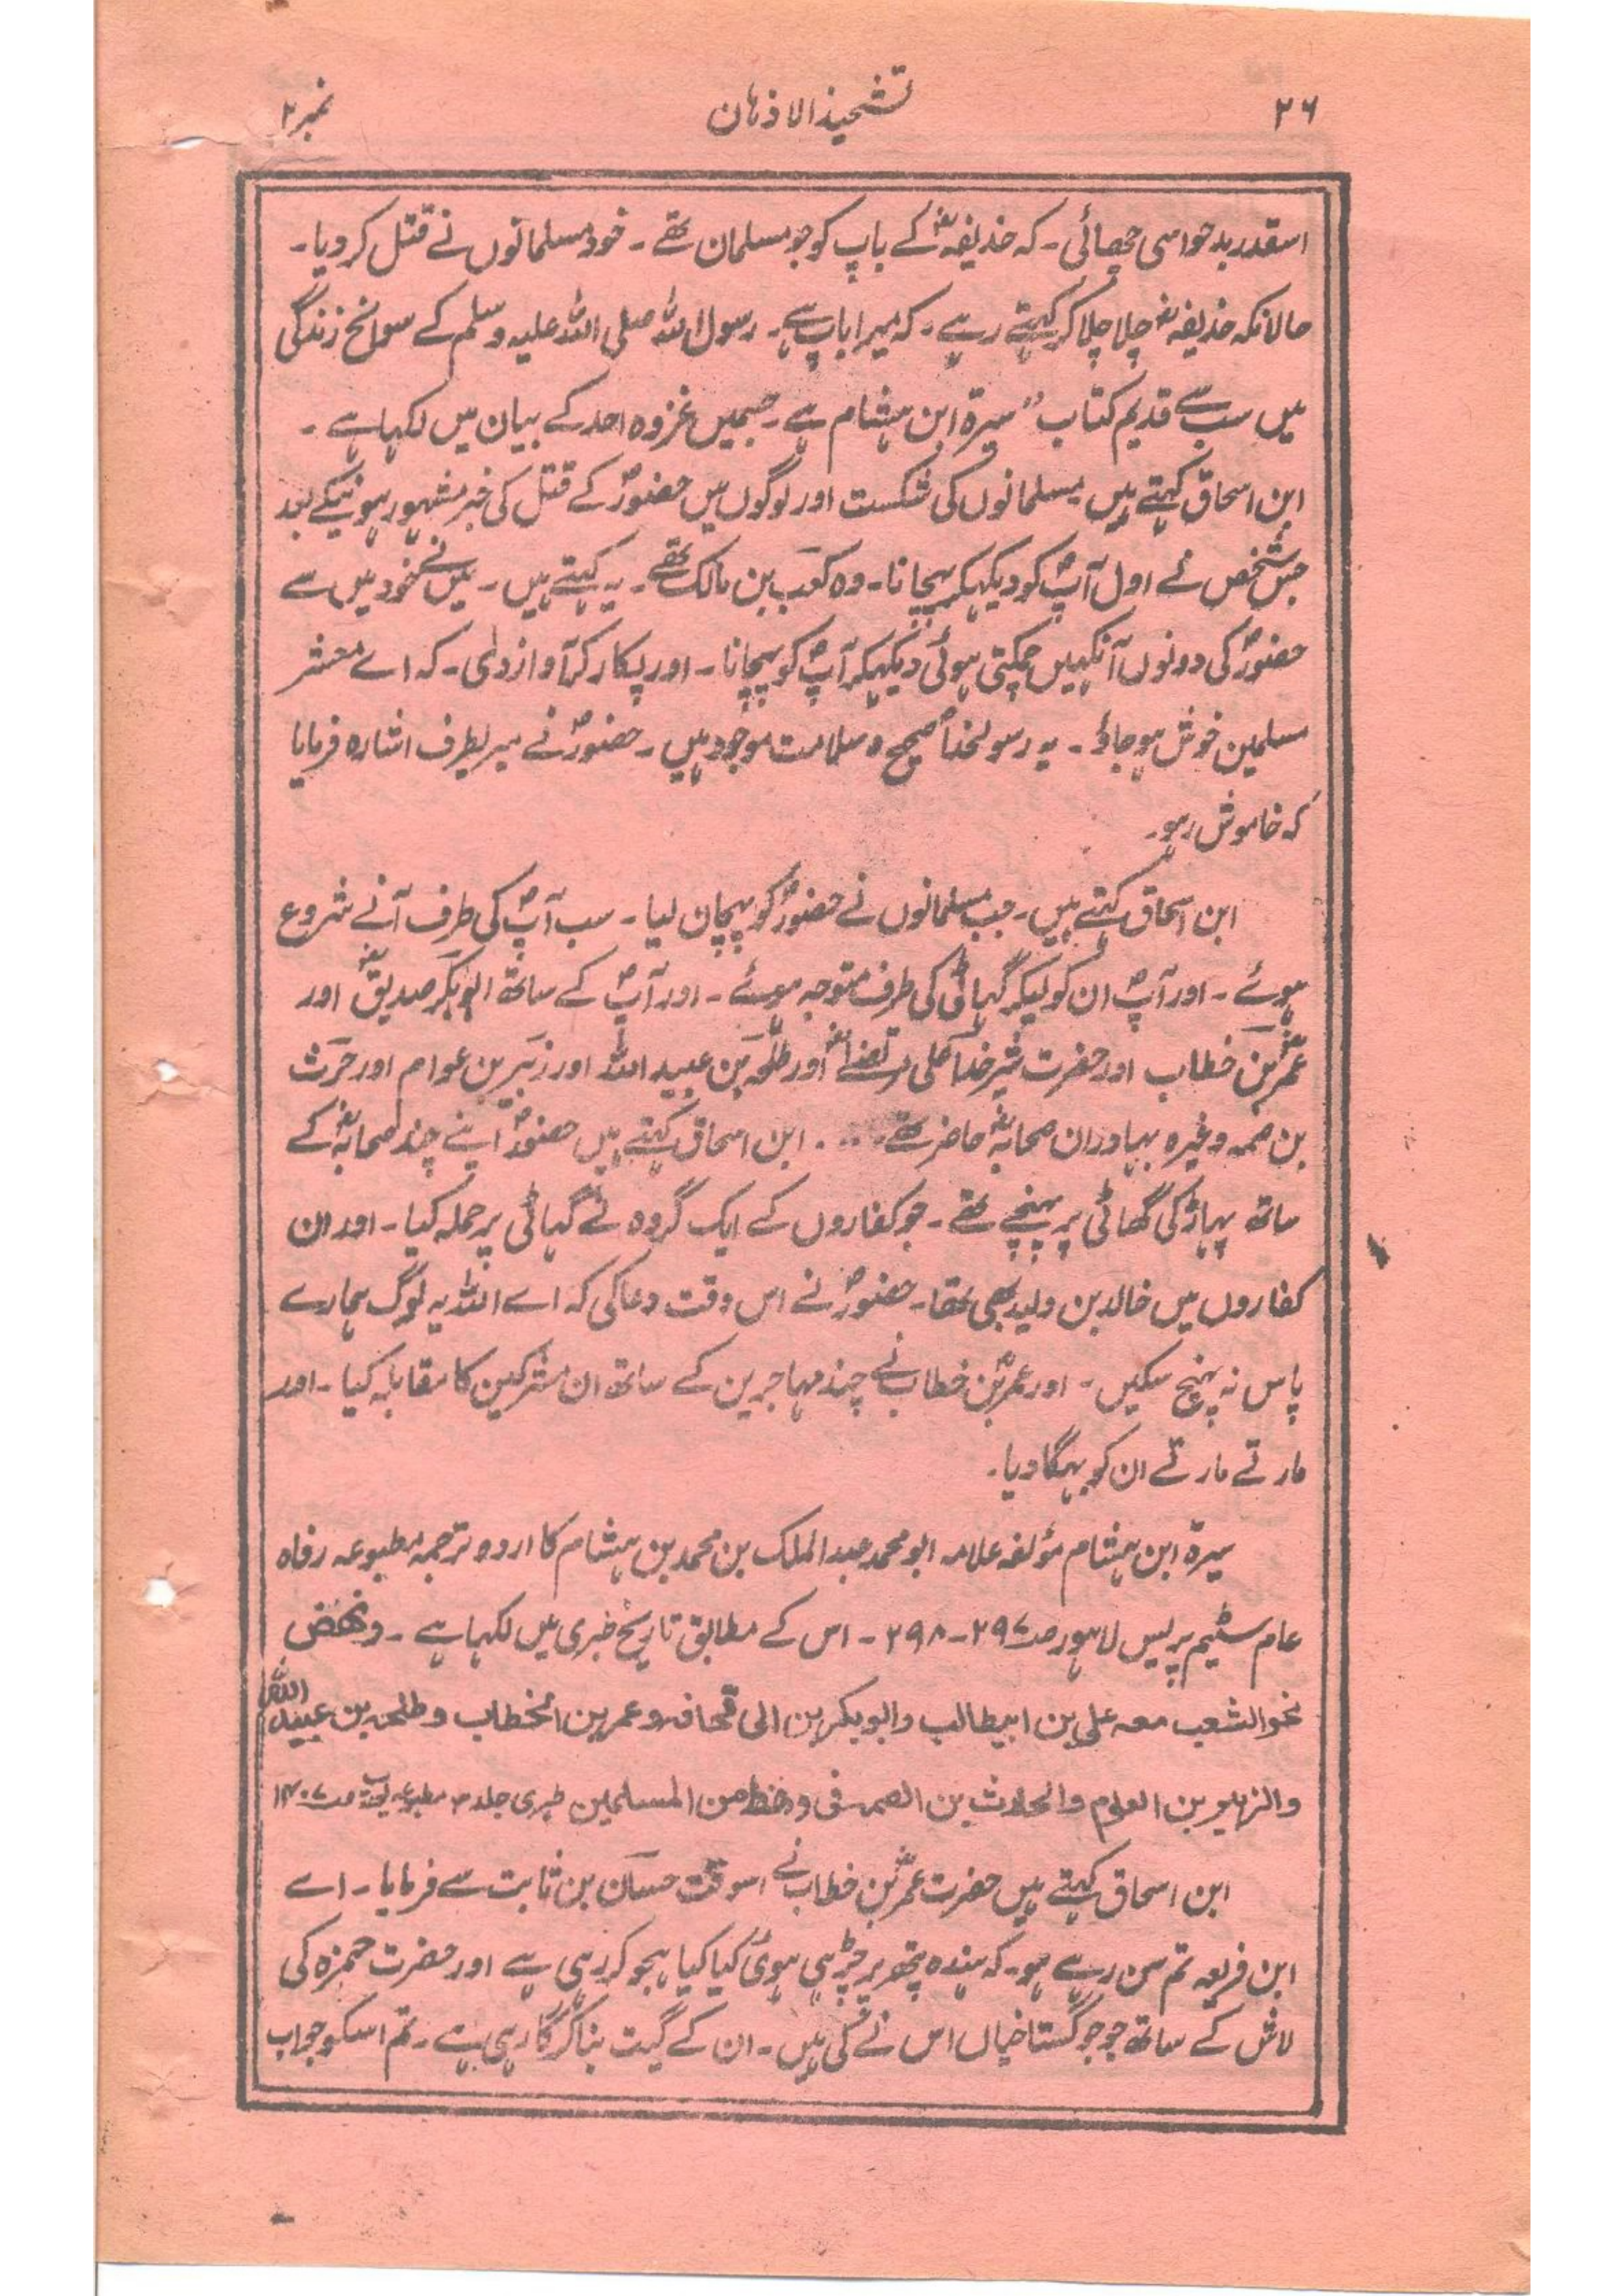 ۲۶ تشحیذ الاذہان نمبر ۲
اسقدر بدحواسی چھائی ۔ کہ حذیفہؓ کے باپ کو جو مسلمان تھے ۔ خود مسلمانوں نے قتل کر دیا ۔
حالانکہ حذیفہؓ چلا چلا کر کہتے رہے ۔ کہ میرا باپ ہے ۔ رسول اللہ صلی اللہ علیہ وسلم کے سوانح زندگی
میں سب سے قدیم کتاب " سیرۃ ابن ہشام ہے ۔ جسمیں غزوہ احد کے بیان میں لکہا ہے ۔
ابن اسحاق کہتے ہیں مسلمانوں کی شکست اور لوگوں میں حضورؐ کے قتل کی خبر مشہور ہونیکے بعد
جس شخص نے اول آپؐ کو دیکہکر پہچانا ۔ وہ کعب بن مالک تھے ۔ یہ کہتے ہیں ۔ میں نے خود میں سے
حضورؐ کی دونوں آنکہیں چمکتی ہوئی دیکہکر آپؐ کو پہچانا ۔ اور پکار کر آواز دی ۔ کہ اے معشر
مسلمین خوش ہو جاؤ ۔ یہ رسولخداؐ صحیح و سلامت موجود ہیں ۔ حضورؐ نے میر یطرف اشارہ فرمایا
کہ خاموش رہو ۔
ابن اسحاق کہتے ہیں ۔ جب مسلمانوں نے حضورؐ کو پہچان لیا ۔ سب آپؐ کی طرف آنے شروع
ہوئے ۔ اور آپؐ ان کو لیکر گہاٹی کی طرف متوجہ ہوئے ۔ اور آپؐ کے ساتھ ابوبکر صدیقؓ اور
عمرؓ بن خطاب اور حضرت شیر خدا علی مرتضےٰؓ اور طلحہ بن عبید اللہ اور زبیر بن عوام اور حرث
بن صمہ وغیرہ بہادران صحابہؓ حاضر تھے . . . . ابن اسحاق کہتے ہیں حضورؐ اپنے چند صحابہؓ کے
ساتھ پہاڑ کی گھاٹی پر پہنچے تھے ۔ جو کفاروں کے ایک گروہ نے گہاٹی پر حملہ کیا ۔ اور ان
کفاروں میں خالد بن ولید بھی تھا ۔ حضورؐ نے اس وقت دعا کی کہ اے اللہ یہ لوگ ہمارے
پاس نہ پہنچ سکیں ۔ اور عمرؓ بن خطاب نے چند مہاجرین کے ساتھ ان مشرکین کا مقابلہ کیا ۔ اور
مارتے مارتے ان کو بہگا دیا ۔
سیرۃ ابن ہشام مؤلفہ علامہ ابو محمد عبد الملک بن محمد بن ہشام کا اردو ترجمہ مطبوعہ رفاہ
عام سٹیم پریس لاہور صـ ۲۹۷ ۔ ۲۹۸ ۔ اس کے مطابق تاریخ طبری میں لکہا ہے ۔ ونھض
نحوالشعب معہ علی بن ابیطالب وابوبکر بن ابی قحافہ وعمر بن الخطاب وطلحہ بن عبید اللہ
والزبیر بن العوام والحارث بن الصمہ فی رھط من المسلمین طبری جلد ۳ مطبوعہ یورپ صـ
ابن اسحاق کہتے ہیں حضرت عمرؓ بن خطاب نے اسوقت حسان بن ثابت سے فرمایا ۔ اے
ابن فریعہ تم سن رہے ہو ۔ کہ ہندہ پتھر پر چڑہی ہوئی کیا کیا ہجو کر رہی ہے اور حضرت حمزہ کی
لاش کے ساتھ جو جو گستاخیاں اس نے کی ہیں ۔ ان کے گیت بنا کر گا رہی ہے ۔ تم اسکو جواب